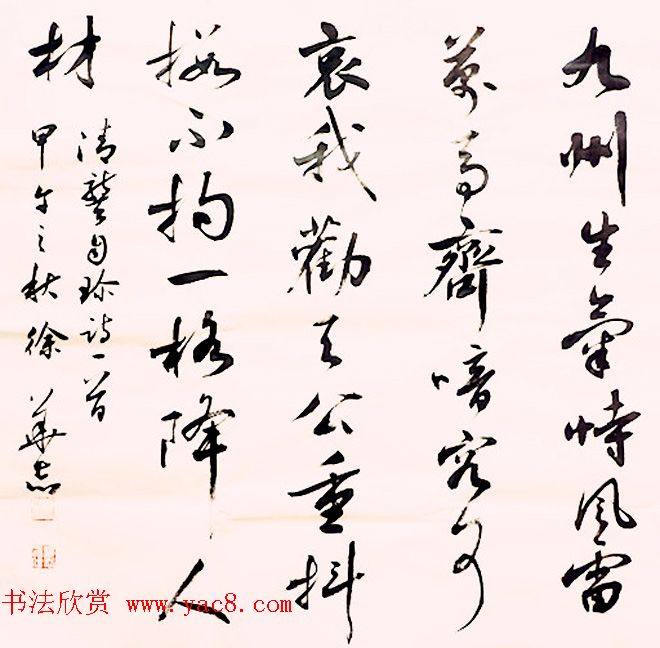 九州生氣恃風雷
萬馬齊喑究可
哀我勸天公重抖
擻不拘一格降人
材
清龔自珍詩一首
甲午之秋徐華志
书法欣赏 www.yac8.com